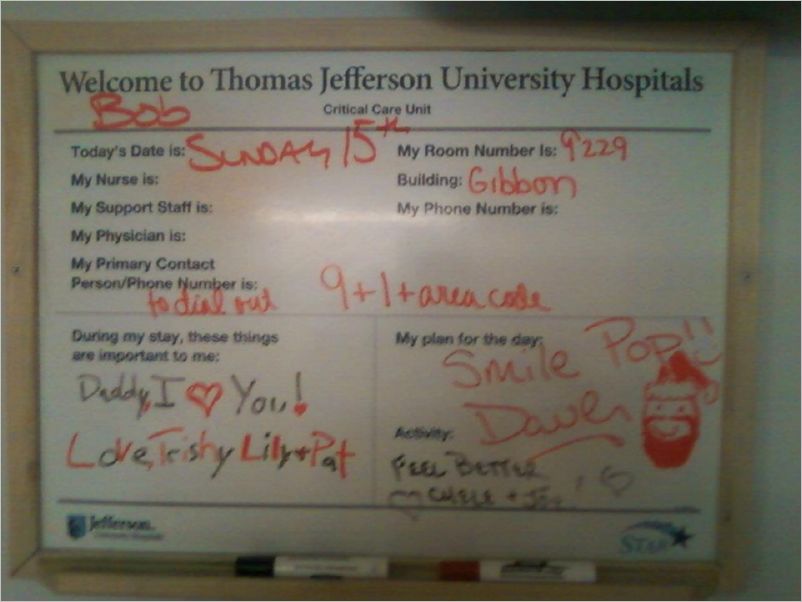 Welcome to Thomas Jefferson University Hospitals
Bob
Critical Care Unit
Today's Date is: SUNDAY 15th
My Room Number Is: 9229
My Nurse is:
Building: Gibbon
My Support Staff is:
My Phone Number is:
My Physician is:
My Primary Contact
Person/Phone Number is:
to dial out 9+1+area code
During my stay, these things
are important to me:
Daddy, I ♥ You!
Love, Trishy Lily + Pat
My plan for the day:
Smile Pop!!
Activity:
FEEL BETTER
Jefferson
University Hospitals
STAR